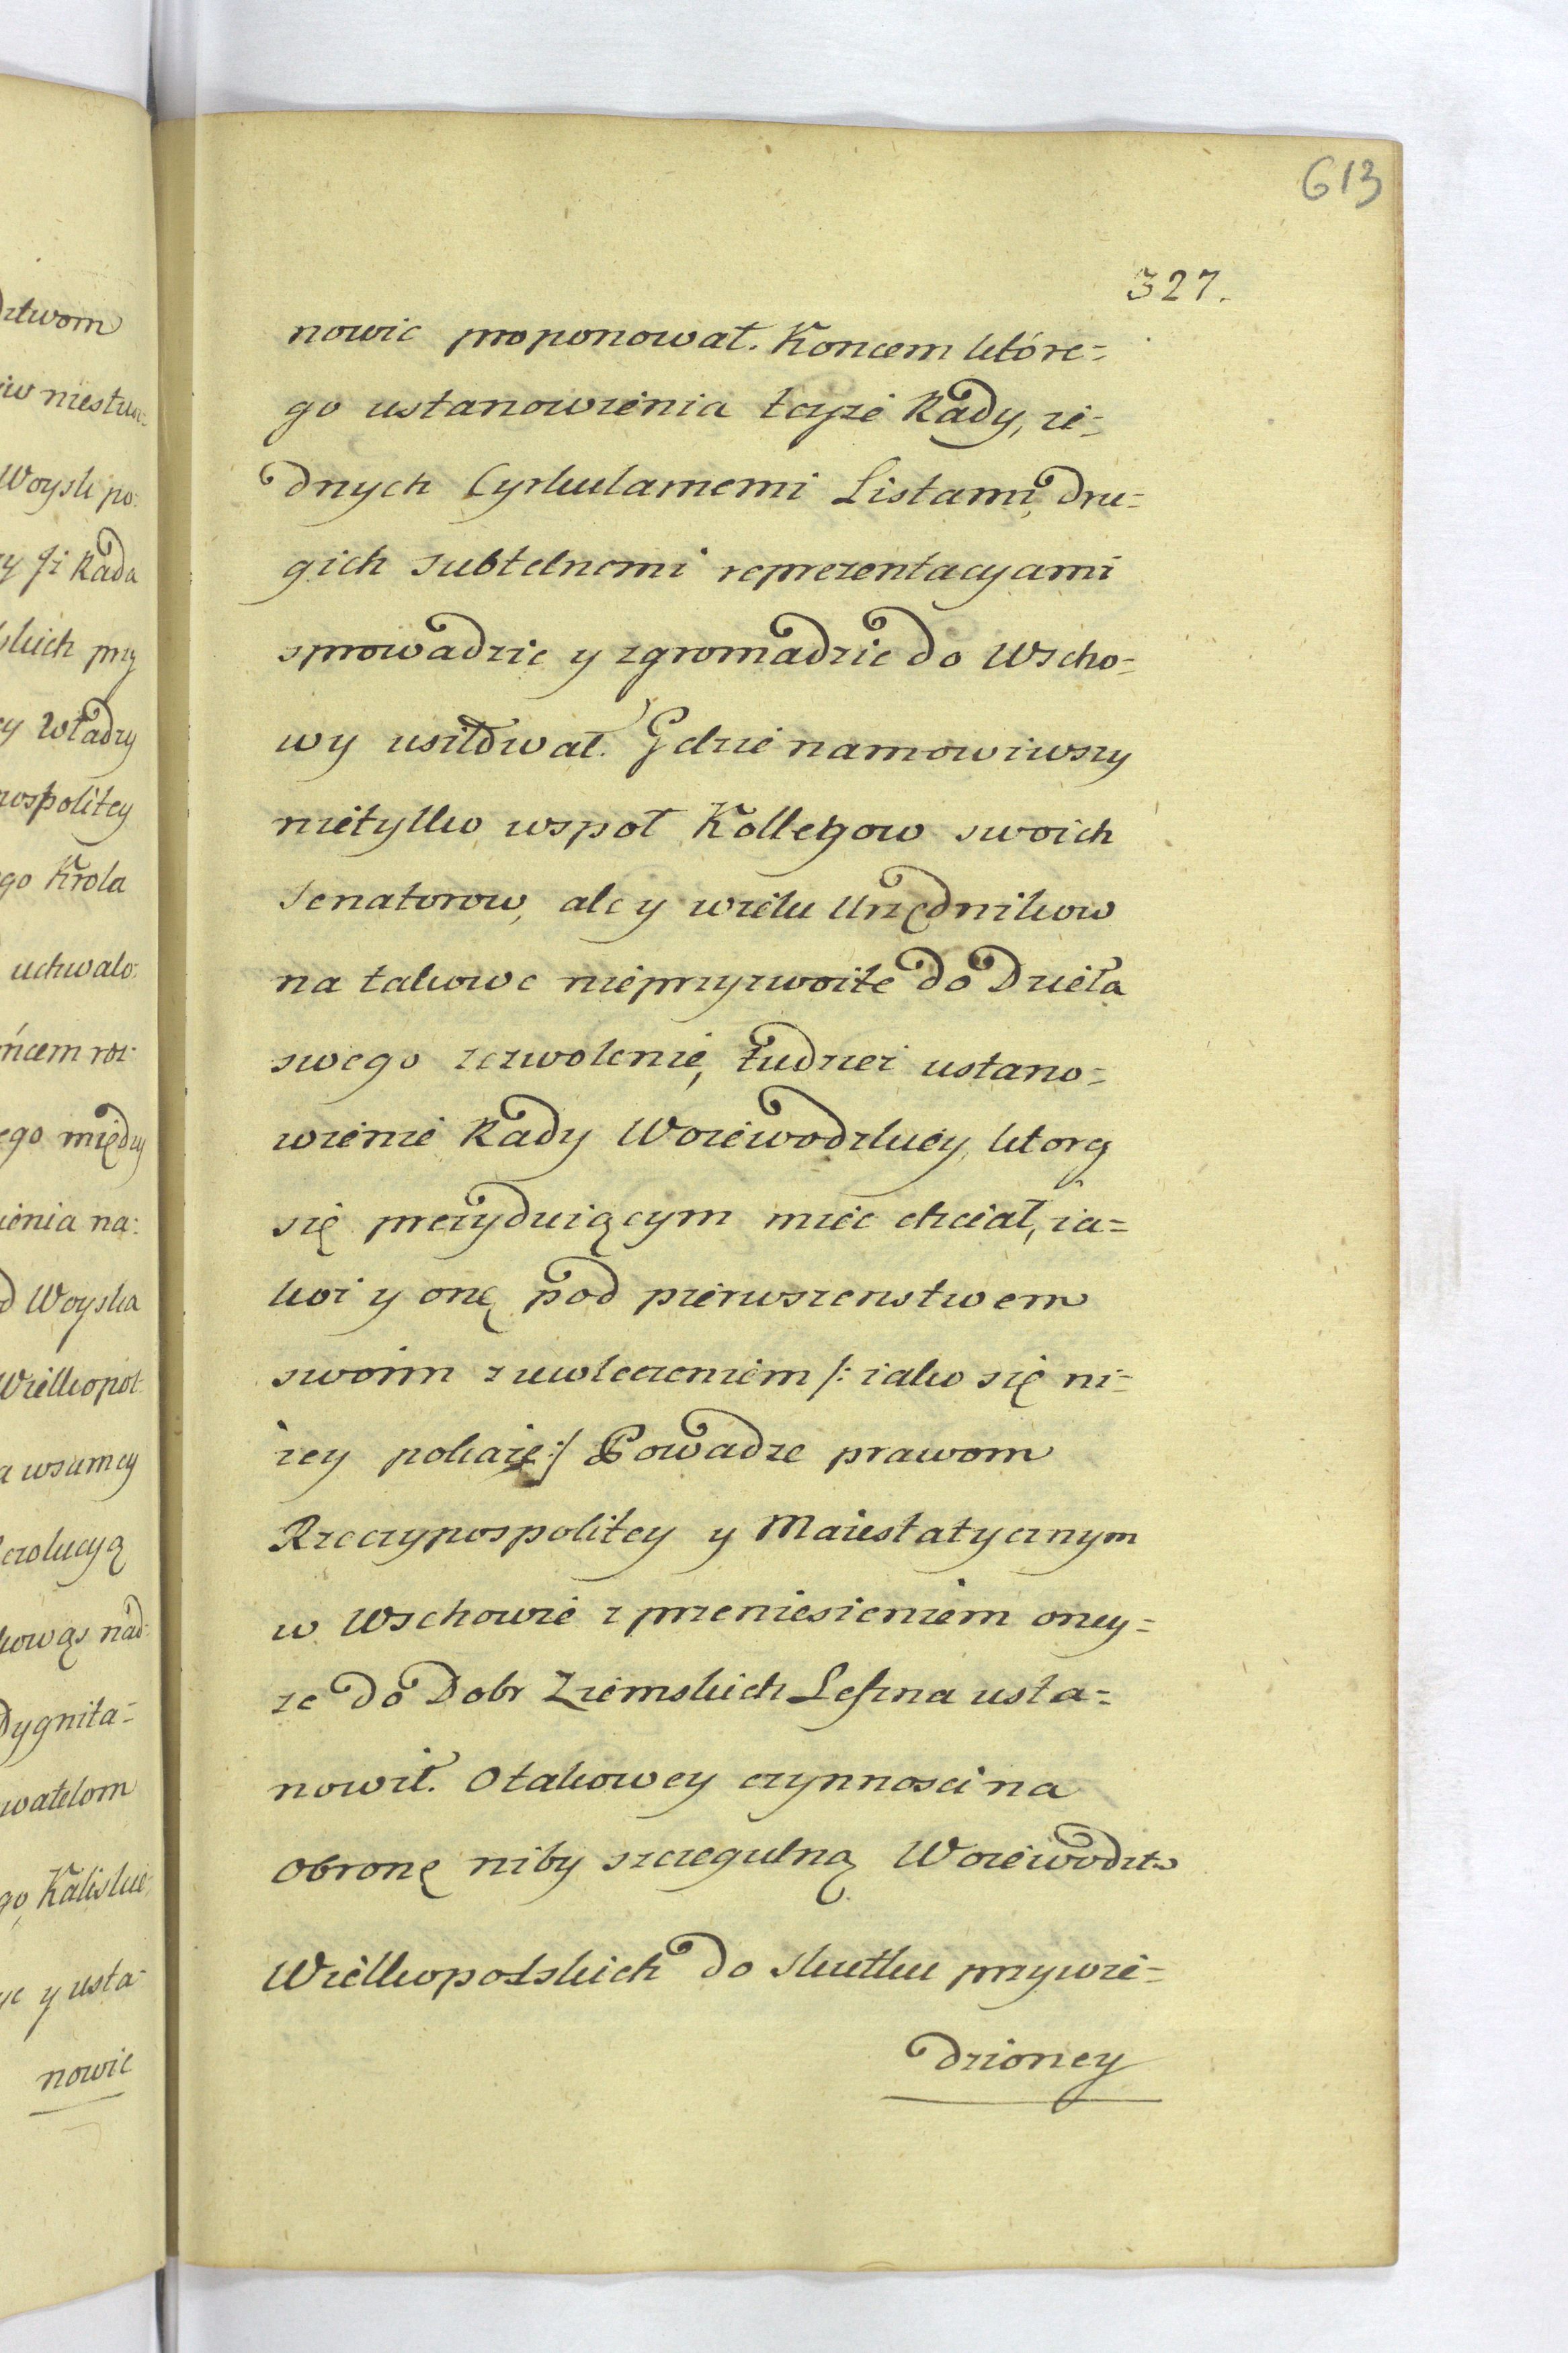 613
327.
nowic proponował. Koncem które=
go ustanowienia teyże Rady, ie=
dnych Cyrkularnemi Listami, dru=
gich subtelnemi reprezentacyami
sprowadzic y zgromadzic do Wscho=
wy usiłował. Gdzie namowiwszy
nietylko wspoł Kollegow swoich
Senatorow, ale y wielu Urzędnikow
na takowe nieprzyzwoite do Dzieła
swego zezwolenie, tudziez ustano=
wienie Rady Woiewodzkiey, ktorą
się prezyduiącym miec chciał, ia=
koz y onę pod pierwszenstwem
swoim z uwłeczeniem /: iako się ni=
zey pokaże :/ Powadze prawom
Rzeczypospolitey y Maiestatycznym
w Wschowie z przeniesieniem oney=
ze do Dobr Ziemskich Leszna usta=
nowił. O takowey czynnosci na
Obronę niby szczegulną Woiewodztw
Wielkopolskich do skutku przywie=
dzioney
dztwom
Woysk po:
Rada
Władzy
go Krola
uchwalo:
ego między
ienia na:
d Woyska
Wielkopol
Dygnita=
go, Kaliskie
yc y usta=
nowic